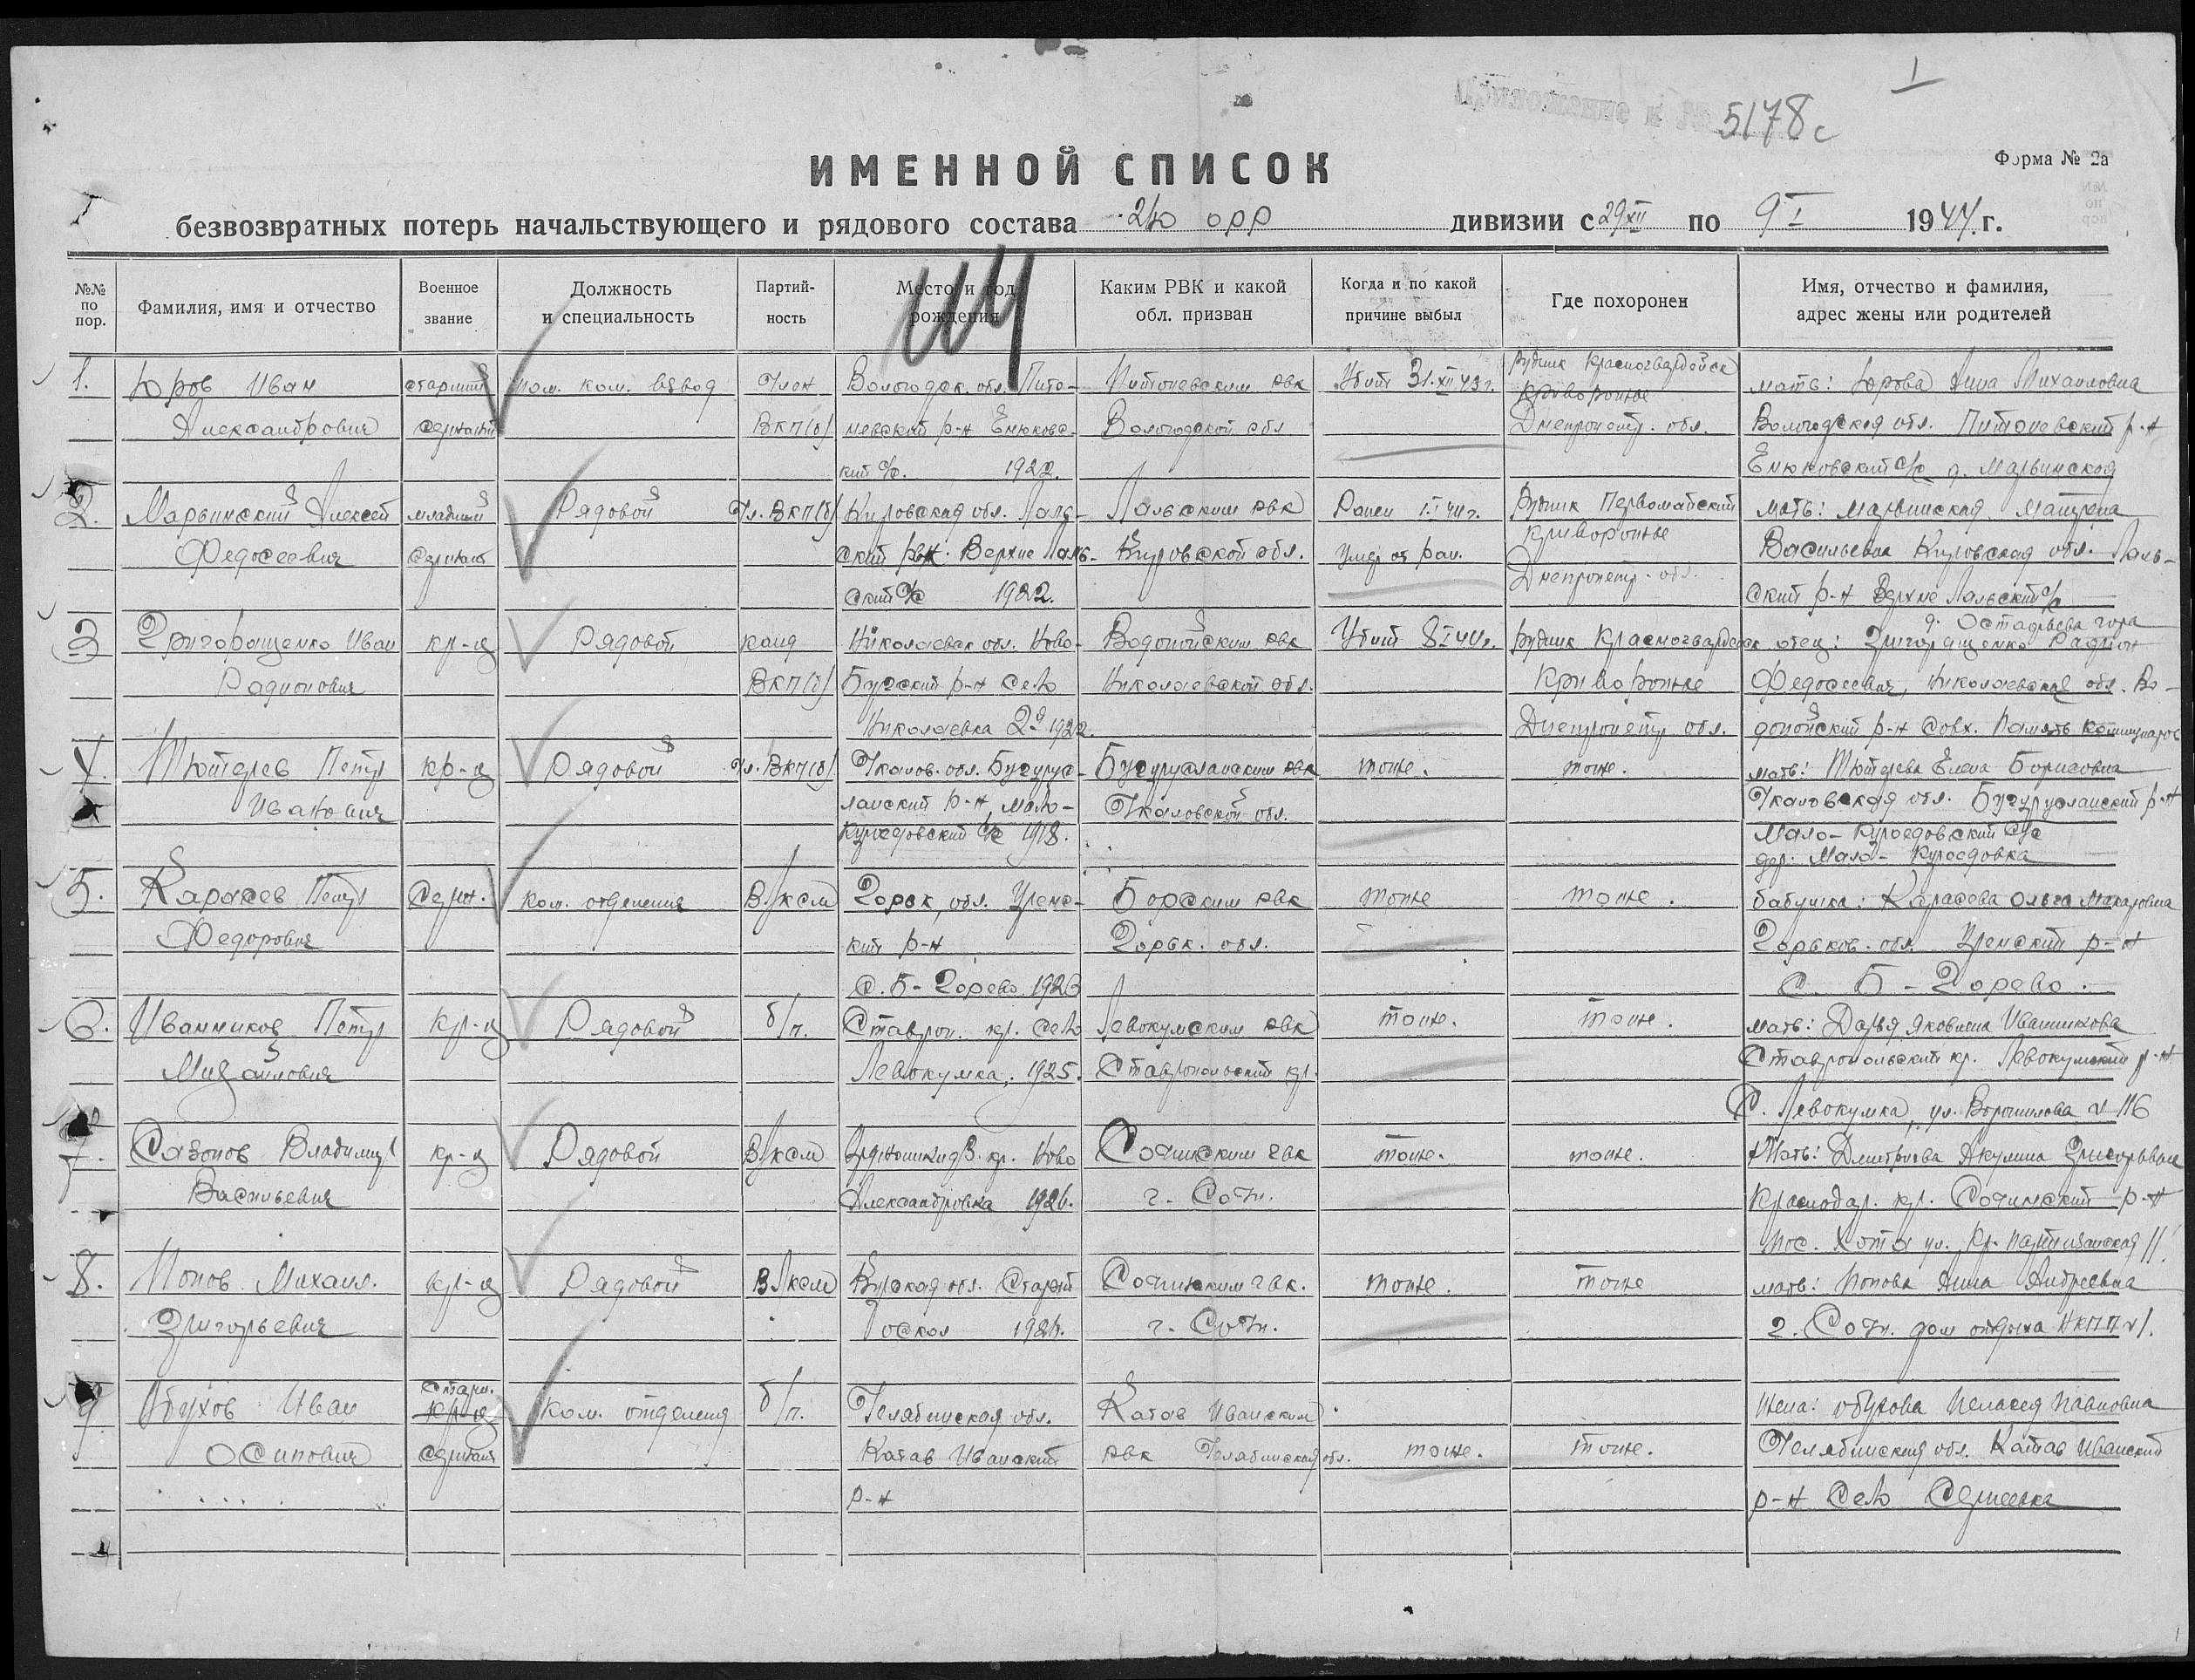 1
5178с
ИМЕННОЙ СПИСОК
Форма № 2а
безвозвратных потерь начальствующего и рядового состава орр дивизии с 29 XII по 9 I 1944 г.
№№ по пор.
Фамилия, имя и отчество
Военное звание
Должность и специальность
Партийность
Место и год рождения
Каким РВК и какой обл. призван
Когда и по какой причине выбыл
Где похоронен
Имя, отчество и фамилия, адрес жены или родителей
1. Юров Иван старший пом. ком. взвод Член Вологодск. обл. РВК Убит 31.XII 43 г. Рудник Красногвардейск мать: Юрова Анна Михайловна
Александрович сержант ВКП(б) р-н Енюковс- Вологодской обл Криворожье Вологодская обл. р-н
кий с/с. 1922. Днепропетр. обл. Енюковский с/с д. Марьинская
2. Марьинский Алексей младший Рядовой Чл. ВКП(б) Кировская обл. Лаль- Лальским РВК Ранен 1.I 44 г. Рудник Первомайский мать: Марьинская Матрена
Федосеевич сержант ский р-н Верхне Лаль- Кировской обл. Умер от ран. Криворожье Васильевна Кировская обл. Лаль-
ский с/с 1922. Днепропетр. обл. ский р-н Верхне Лальский с/с
д. Остафьева гора
3 Григоращенко Иван кр-ц Рядовой канд Николаевск обл. Ново- Водопойским РВК Убит 8 I 44 г. Рудник Красногвардейск отец: Григоращенко Радион
Радионович ВКП(б) Бугский р-н село Николаевской обл. Криворожье Федосеевич, Николаевская обл. Во-
Николаевка 2я 1922. Днепропетр обл. допойский р-н совх. Память коммунаров
4. Тютерев Петр кр-ц Рядовой Чл. ВКП(б) Чкалов. обл. Бугурус- Бугурусланским РВК тоже. тоже. мать: Тютерева Елена Борисовна
Иванович ланский р-н, мало- Чкаловской обл. Чкаловская обл. Бугурусланский р-н
Куроедовский с/с 1918. Мало-Куроедовский с/с
дер. Мало-Куроедовка
5. Карасев Петр Серж. Ком. отделения ВЛКСМ Горьк. обл. Уренс- Борским РВК тоже тоже. бабушка: Карасева Ольга Макаровна
Федорович кий р-н Горьк. обл. Горьков. обл. Уренский р-н
с. Б-Горево 1923 с. Б-Горево.
6. Иванников Петр кр-ц Рядовой б/п. Ставроп. кр. село Левокумским РВК тоже. тоже. мать: Дарья Яковлевна Иванникова
Михайлович Левокумка, 1925. Ставропольский кр. Ставропольский кр. Левокумский р-н
с. Левокумка, ул. Ворошилова № 116
7. Сазонов Владимир кр-ц Рядовой ВЛКСМ Орджоникидз. кр. Ново Сочинским ГВК тоже. тоже. Мать: Дмитриева Акулина Григорьевна
Васильевич Александровка 1926. г. Сочи. Краснодар. кр. Сочинский р-н
пос. Хоста ул. Кр. партизанская 11.
8. Попов Михаил. кр-ц Рядовой ВЛКСМ Курская обл. Старый Сочинским ГВК. тоже. тоже мать: Попова Анна Андреевна
Григорьевич Оскол г. Сочи. г. Сочи. дом отдыха
9 Обухов Иван старш. кр-ц Ком. отделения б/п. Челябинская обл. Катав Иванским жена: Обухова Пелагея Павловна
Осипович сержант Катав Иванский РВК Челябинская обл. тоже. тоже. Челябинская обл. Катав Иванский
р-н р-н село